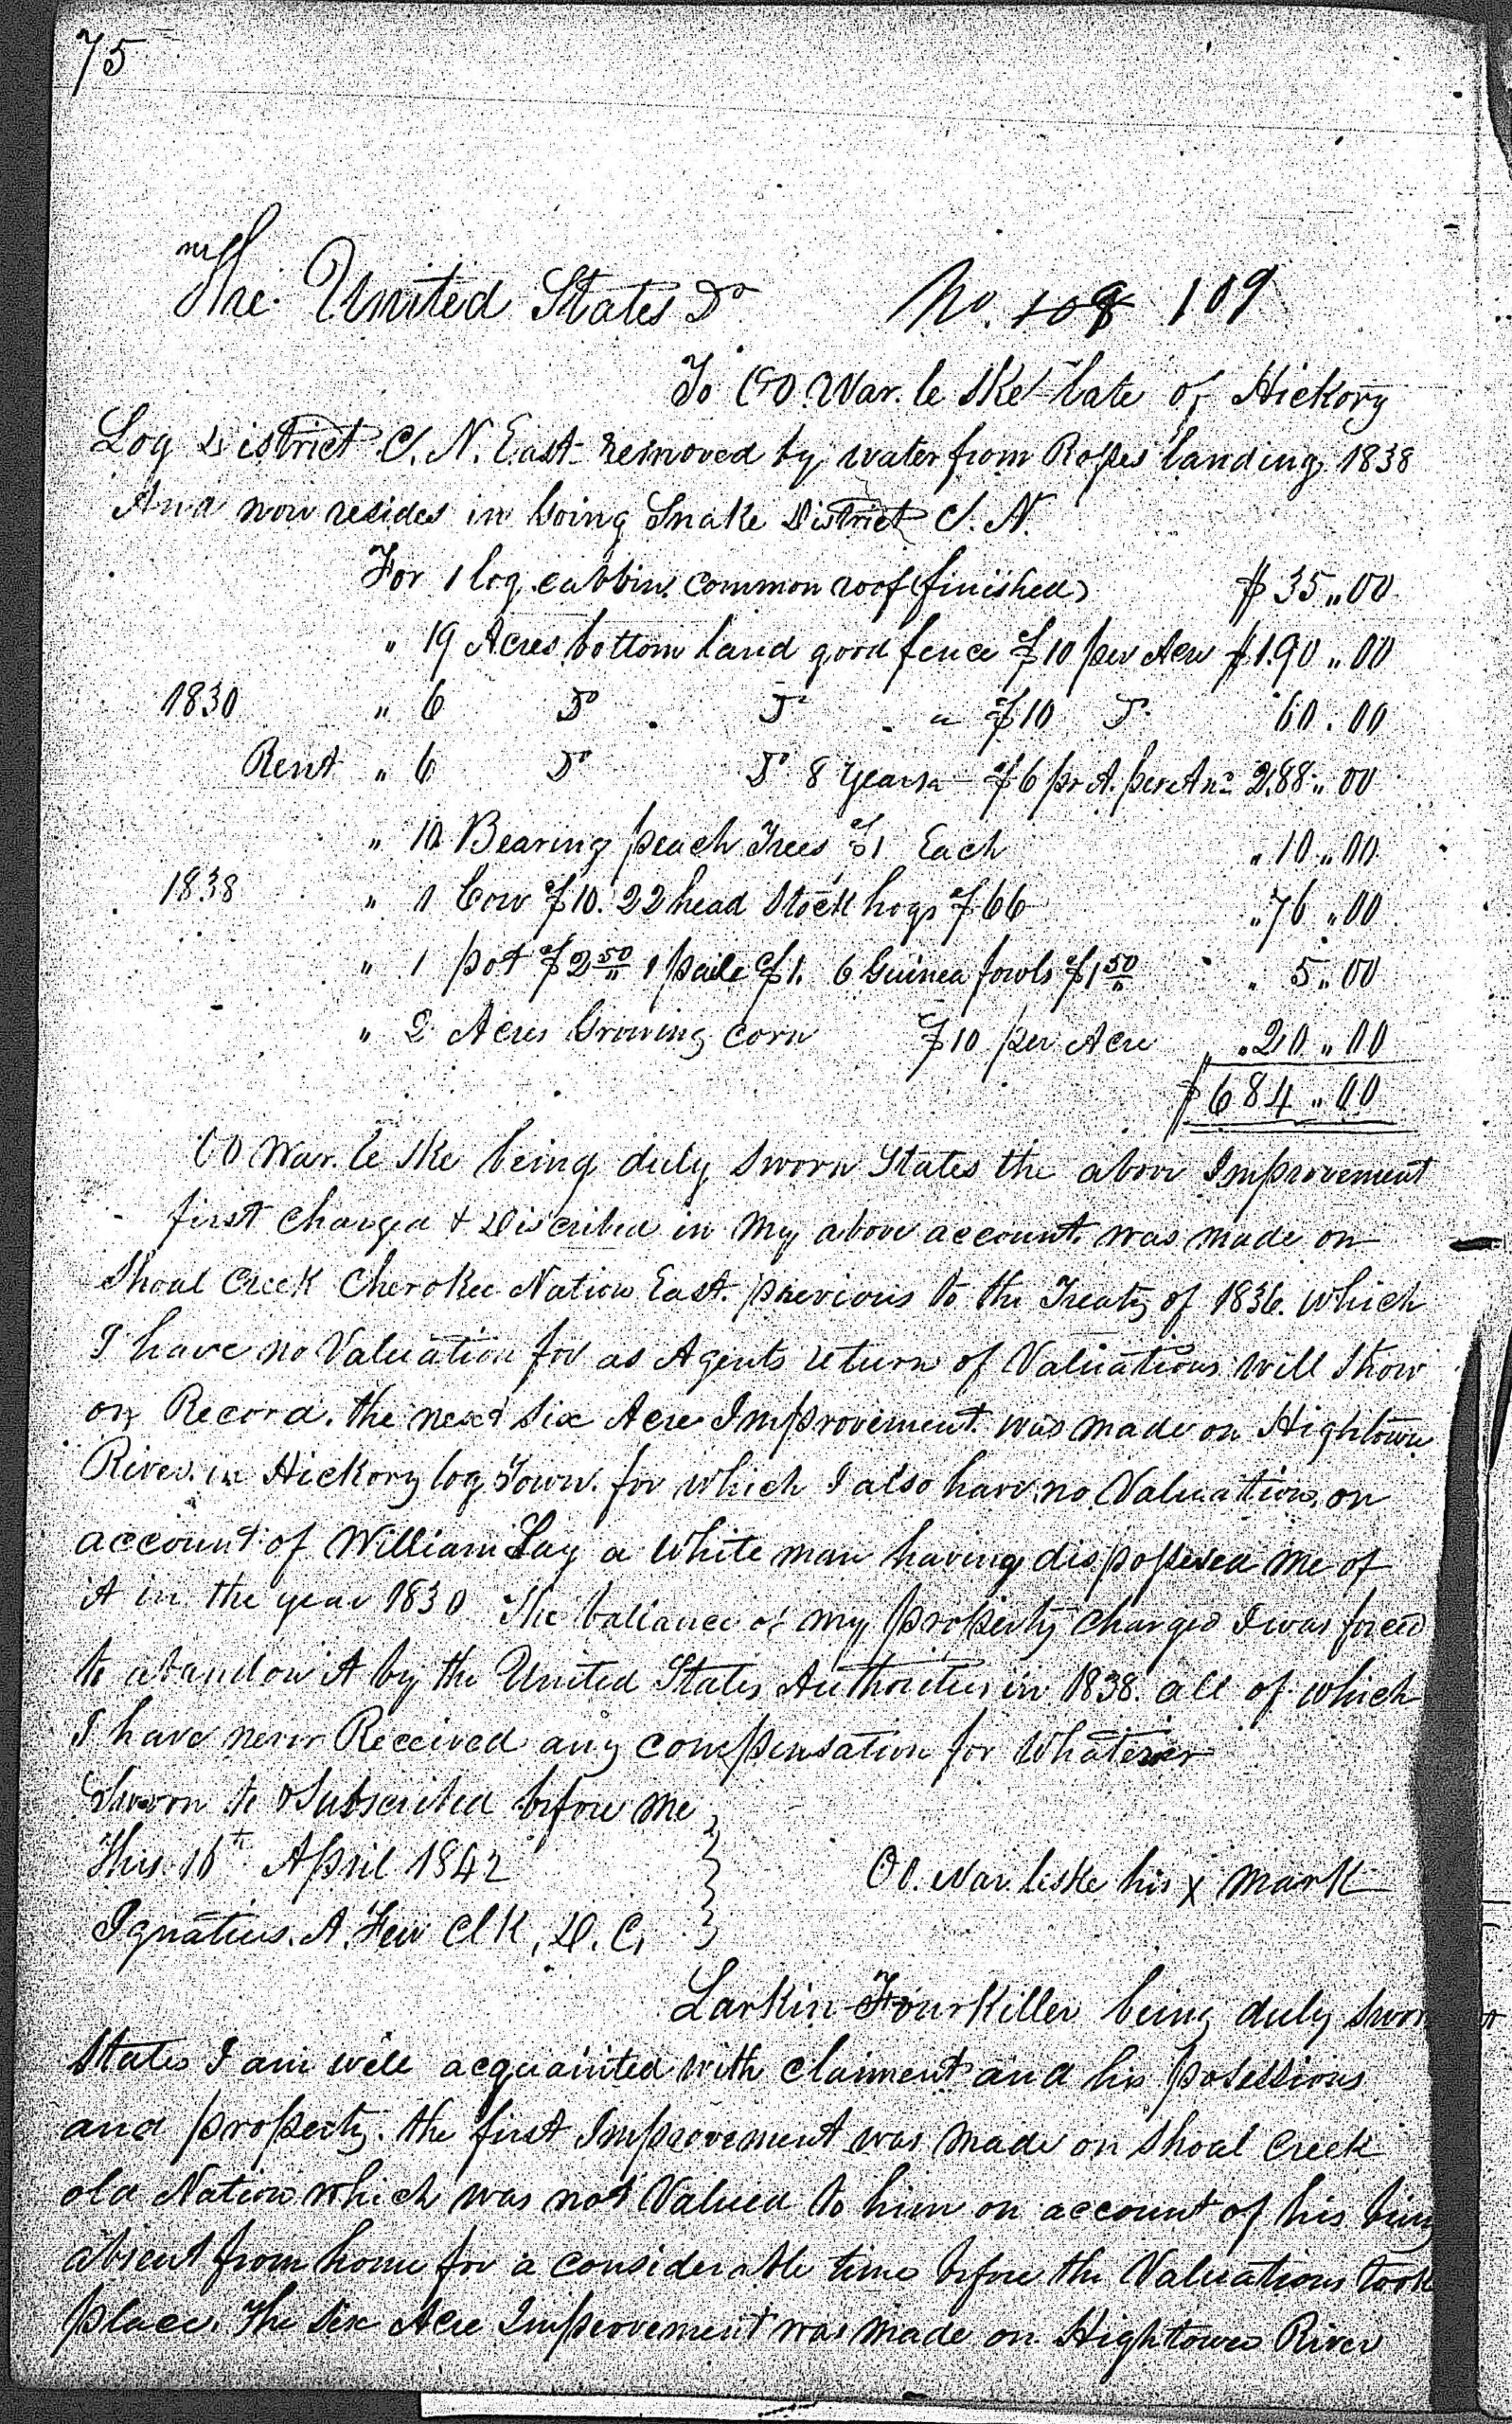 75
The United States Dr No. 108 109
To Oo. War. le ske late of Hickory
Log District C. N. East removed by water from Rosses landing 1838
And now resides in Going Snake District C. N.
For 1 log cabbin common roof (finished) $ 35 ,, 00
" 19 Acres bottom land good fence $10 per Acre $190 ,, 00
1830 " 6 Do Do a $10 Do 60 . 00
Rent " 6 Do Do 8 years a $6 pr A. per Ann 288 ,, 00
" 10 Bearing peach Trees $1 Each " 10 ,, 00
1838 " 1 Cow $10. 22 head Stock hogs $66 " 76 ,, 00
" 1 pot $2 50 1 paile $1. 6 Guinea fowls $1 50 " 5 ,, 00
" 2 Acres Growing corn $10 per Acre " 20 ,, 00
$684 ,, 00
Oo War. le ske being duly sworn States the above Improvement
first charged & Discribed in my above account was made on
Shoal Creek Cherokee Nation East. previous to the Treaty of 1836. which
I have no Valuation for as Agents return of Valuations will show
on Record. the next six Acre Improvement was made on Hightown
River in Hickory log Town. for which I also have no Valuation, on
account of William Lay a white man having dispossesed me of
it in the year 1830 The ballance of my property charged I was forced
to abandon it by the United States Authorities in 1838. all of which
I have never Received any compensation for whatever
Sworn to & Subscribed before me
This 16th April 1842 Oo. War. leske his x mark
Ignatius. A. Few Clk, D. C.
Larkin Fourkiller being duly sworn
States I am well acquainted with claiment and his posessions
and property. the first Improvement was made on Shoal Creek
old Nation which was not Valued to him on account of his being
absent from home for a considerable time before the Valuations took
place. The six Acre Improvement was made on Hightower River